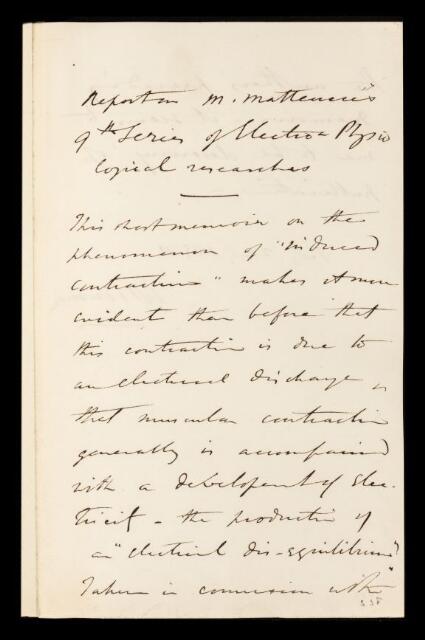 Report on M. Matteucci's
9th Series of Electro-Physio
logical researches
This short memoir on the
phenomenon of "induced
contraction" makes it more
evident than before that
this contraction is due to
an electrical discharge
that muscular contraction
generally is accompanied
with a development of elec-
tricity - the production of
an "electrical dis-equilibrium"
Taken in connexion with
338